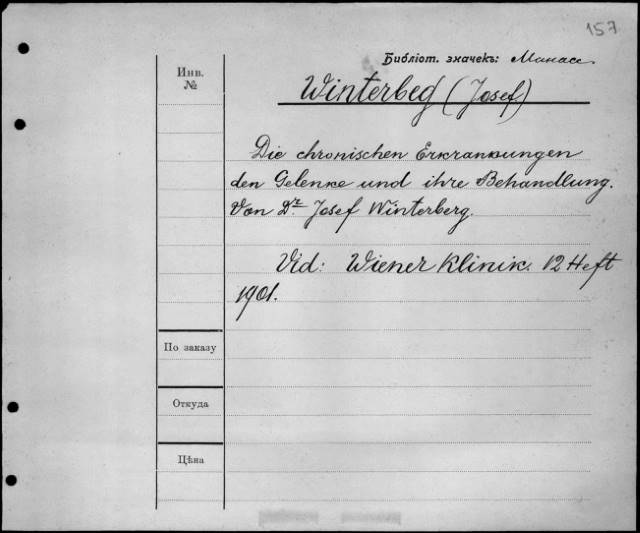 157
Библіот. значекъ: Манасе.
Инв.
№
Winterbeg (Josef)
Die chronischen Erkrankungen
den Gelenke und ihre Behandlung.
Von Dr. Josef Winterberg.
Vid: Wiener Klinik. 12 Heft
1901.
По заказу
Откуда
Цѣна